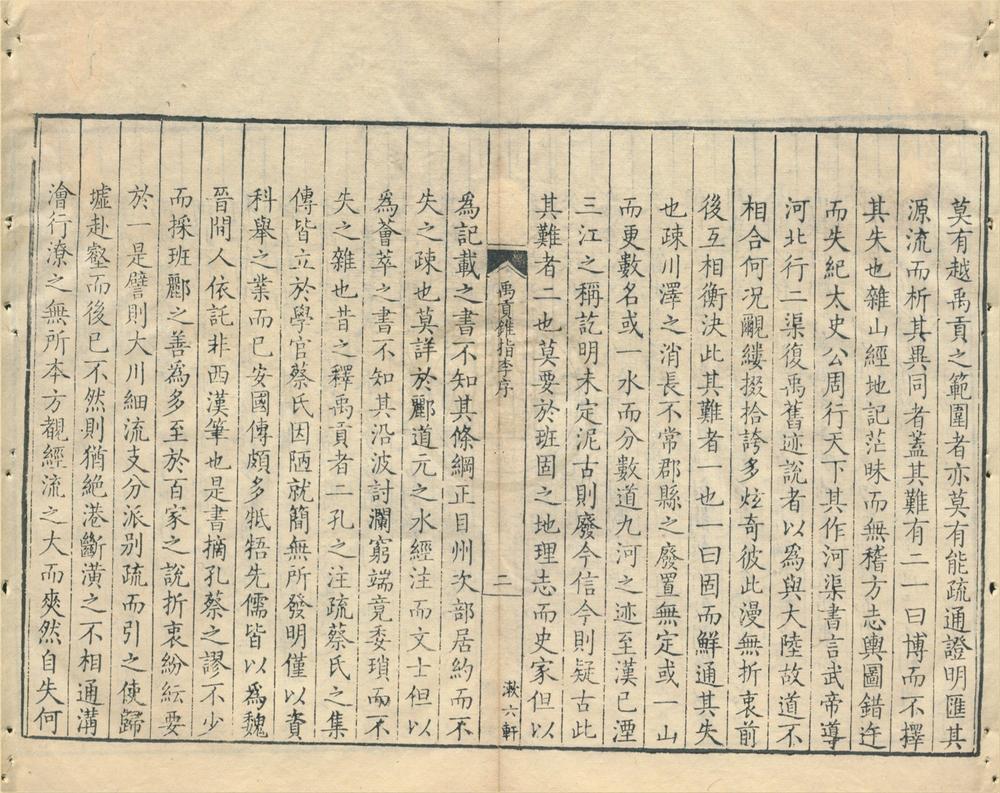 莫有越禹貢之範圍者亦莫有能疏通證明匯其
源流而析其異同者蓋其難有二一曰博而不擇
其失也雜山經地記茫昧而無稽方志輿圖錯迕
而失紀太史公周行天下其作河渠書言武帝導
河北行二渠復禹舊迹說者以爲與大陸故道不
相合何況覼縷掇拾誇多炫奇彼此漫無折衷前
後互相衡決此其難者一也一曰固而鮮通其失
也疎川澤之消長不常郡縣之廢置無定或一山
而更數名或一水而分數道九河之迹至漢已湮
三江之稱訖明未定泥古則廢今信今則疑古此
其難者二也莫要於班固之地理志而史家但以
禹貢錐指李序
二
漱六軒
爲記載之書不知其條綱正目州次部居約而不
失之疎也莫詳於酈道元之水經注而文士但以
爲薈萃之書不知其沿波討瀾窮端竟委瑣而不
失之雜也昔之釋禹貢者二孔之注疏蔡氏之集
傳皆立於學官蔡氏因陋就簡無所發明僅以資
科舉之業而已安國傳頗多牴牾先儒皆以爲魏
晉間人依託非西漢筆也是書摘孔蔡之謬不少
而採班酈之善爲多至於百家之說折衷紛紜要
於一是譬則大川細流支分派別疏而引之使歸
墟赴壑而後已不然則猶絕港斷潢之不相通溝
澮行潦之無所本方覩經流之大而爽然自失何